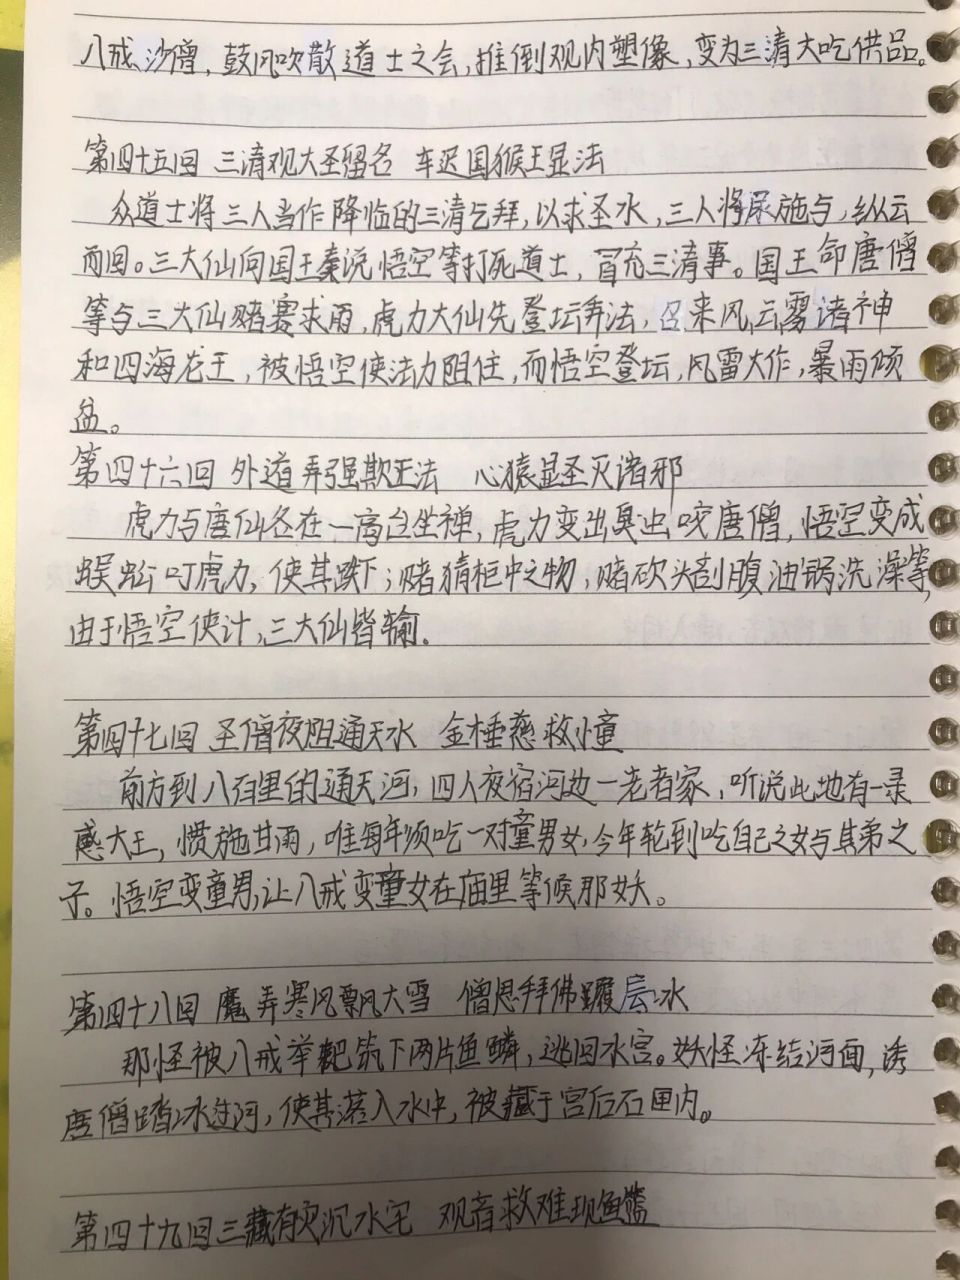 八戒、沙僧，鼓风吹散道士之会，推倒观内塑像，变为三清大吃供品。
第四十五回 三清观大圣留名 车迟国猴王显法
众道士将三人当作降临的三清乞拜，以求圣水，三人将尿施与，纵云
而回。三大仙向国王奏说悟空等打死道士，冒充三清事。国王命唐僧
等与三大仙赌赛求雨，虎力大仙先登坛弄法，召来风云雾诸神
和四海龙王，被悟空使法力阻住，而悟空登坛，风雷大作，暴雨倾
盆。
第四十六回 外道弄强欺正法 心猿显圣灭诸邪
虎力与唐仙各在一高台坐禅，虎力变出臭虫咬唐僧，悟空变成
蜈蚣叮虎力，使其跌下；赌猜柜中之物，赌砍头剖腹油锅洗澡等，
由于悟空使计，三大仙皆输。
第四十七回 圣僧夜阻通天水 金棰慈救小童
前方到八百里的通天河，四人夜宿河边一老者家，听说此地有一录
感大王，惯施甘雨，唯每年须吃一对童男女，今年轮到吃自己之女与其弟之
子。悟空变童男，让八戒变童女在庙里等候那妖。
第四十八回 魔弄寒风飘大雪 僧思拜佛履层冰
那怪被八戒举耙筑下两片鱼鳞，逃回水宫。妖怪冻结河面，诱
唐僧踏冰过河，使其落入水中，被藏于宫后石匣内。
第四十九回 三藏有灾沉水宅 观音救难现鱼篮